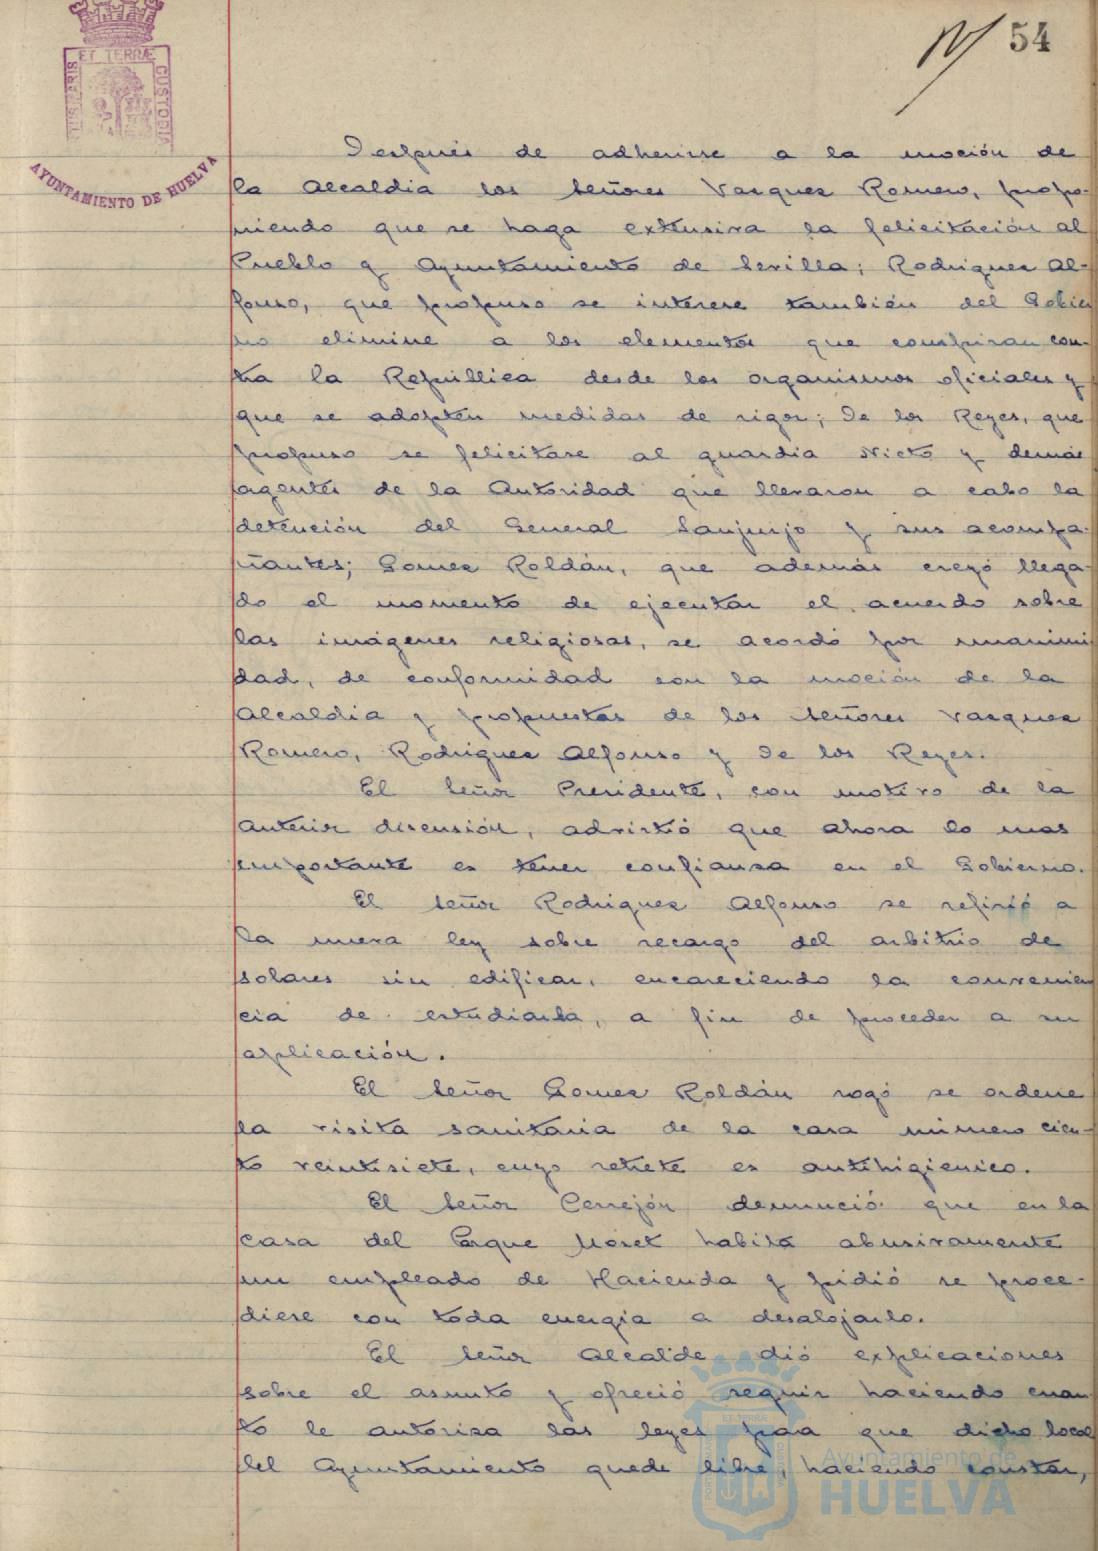 54
ET TERRÆ
CUSTODIA
AYUNTAMIENTO DE HUELVA
Después de adherirse a la moción de
la Alcaldia los Señores Vazquez Romero, propo-
niendo que se haga extensiva la felicitación al
Pueblo y Ayuntamiento de Sevilla; Rodriguez Al-
fonso, que propuso se interese también del Gobier
no elimine a los elementos que conspiran con-
tra la República desde los organismos oficiales y
que se adopten medidas de rigor; De los Reyes, que
propuso se felicitase al guardia Nieto y demás
agentes de la Autoridad que llevaron a cabo la
detención del General Sanjurjo y sus acompa-
ñantes; Gomez Roldán, que además creyó llega-
do el momento de ejecutar el acuerdo sobre
las imágenes religiosas, se acordó por unanimi
dad, de conformidad con la moción de la
Alcaldia y propuestas de los Señores Vazquez
Romero, Rodriguez Alfonso y De los Reyes.
El Señor Presidente, con motivo de la
anterior discusión, advirtió que ahora lo mas
importante es tener confianza en el Gobierno.
El Señor Rodriguez Alfonso se refirió a
la nueva ley sobre recargo del arbitrio de
solares sin edificar, encareciendo la convenien
cia de estudiarla, a fin de proceder a su
aplicación.
El Señor Gomez Roldán rogó se ordene
la visita sanitaria de la casa número cien-
to veintisiete, cuyo retrete es antihigienico.
El Señor Cerrejón denunció que en la
casa del Parque Moret habita abusivamente
un empleado de Hacienda y pidió se proce-
diese con toda energia a desalojarlo.
El Señor Alcalde dió explicaciones
sobre el asunto y ofreció seguir haciendo cuan-
to le autoriza las leyes para que dicho local
del Ayuntamiento quede libre, haciendo constar,
Ayuntamiento de
HUELVA